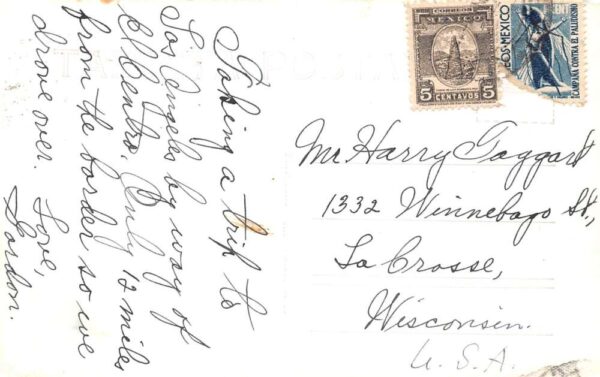 Taking a trip to
Los Angeles by way of
El Centro. Only 12 miles
from the border so we
drove over. Love,
Gordon.
CORREOS
MEXICO
5 5
CENTAVOS
OS-MEXICO
CAMPAÑA CONTRA EL PALUDISMO
Mr Harry Taggart
1332 Winnebago St,
La Crosse,
Wisconsin.
U. S. A.